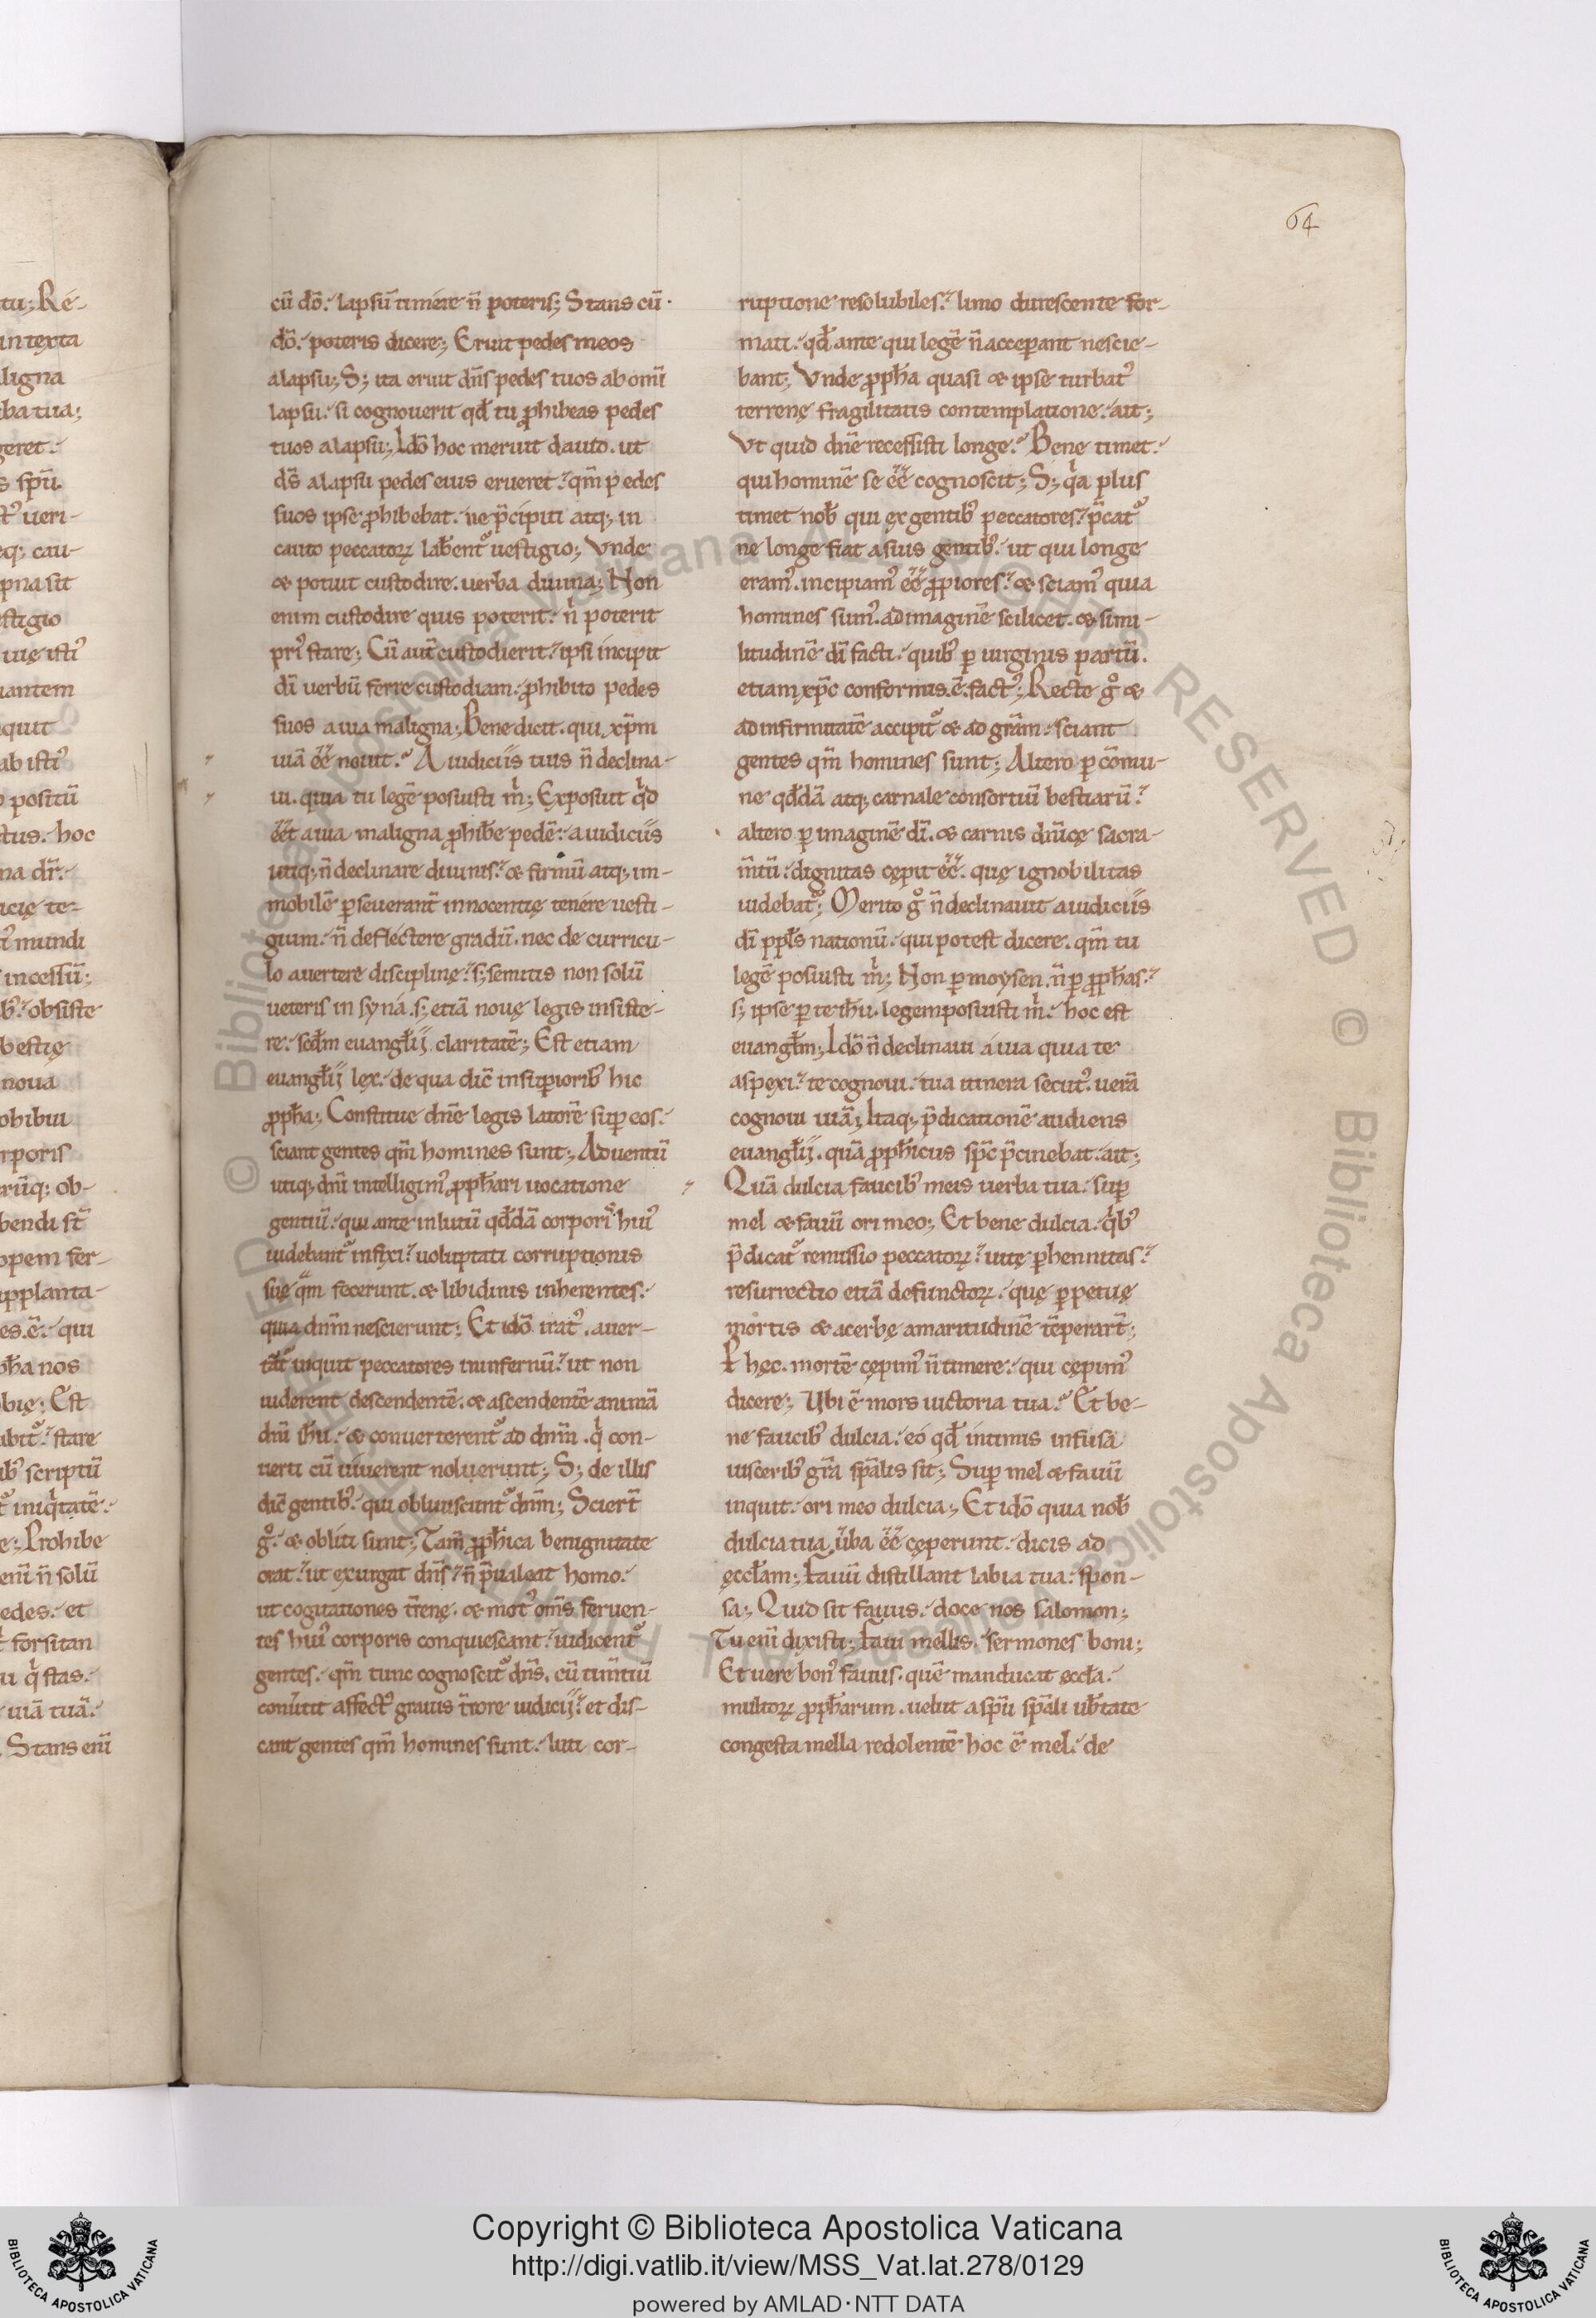 64
cū dō. lapsū timére n̄ poteris; Stans cū
dō. poteris dicere; Eruit pedes meos
a lapsu; S; ita eruit dn̄s pedes tuos ab omī
lapsu. si cognouerit qd̄ tu ꝓhibeas pedes
tuos a lapsu; Idō hoc meruit dauid. ut
ds̄ a lapsu pedes eius erueret. qm̄ pedes
suos ipse ꝓhibebat. ne p̄cipiti atq; in
cauto peccatoꝝ labent᷑ uestigio; Vnde
& potuit custodire. uerba diuina; Non
enim custodire quis poterit. n̄ poterit
pri᷒ stare; Cū aut̄ custodierit. ipsi incipit
dī uerbū ferre custodiam. ꝓhibito pedes
suos a uia maligna; Bene dicit. qui xp̄m
uiā eē̄ nouit. A iudiciis tuis n̄ declina-
ui. quia tu legē posuisti m̍; Exposuit qͥd
eēt a uia maligna ꝓhib̄e pedē. a iudiciis
utiq; n̄ declinare diuinis. & firmū atq; im-
mobilē ꝑseuerant̄ innocentię tenére uesti-
gium. n̄ defléctere gradū. nec de curricu-
lo auertere disciplinę. s; semitis non solū
ueteris in syná. s; etiā nouę legis insiste-
re. scd̄m euangl̄ij claritatē; Est etiam
euangl̄ij lex. de qua dic̄ in suꝑiorib᷒ hic
ꝓph̄a; Constitue dn̄e legis latorē suꝑ eos.
sciant gentes qm̄ homines sunt; Aduentū
utiq; dn̄i intelligim᷒ ꝓph̄ari uocatione
gentiū. qui ante in lutū qd̄dā corporis hui᷒
uidebant᷑ infixi. uoluptati corruptionis
suę qm̄ fecerunt. & libidinis inherentes.
quia dn̄m nescierunt; Et idō irat᷒. auer-
tat᷑ inquit peccatores in infernū. ut non
uiderent descendentē. & ascendentē animā
dn̄i ih̄u. & conuerterent᷑ ad dn̄m. qͥ con-
uerti cū uiuerent noluerunt; S; de illis
dic̄ gentib᷒. qui obliuiscunt᷑ dn̄m; Sciert̄
gͦ. & obliti sunt; Tam̄ ꝓph̄ica benignitate
orat. ut exurgat dn̄s. n̄ p̄ualeat homo.
ut cogitationes t̄renę. & mot᷒ om̄s feruen-
tes hui᷒ corporis conquiescant. iudicent᷑
gentes. qm̄ tunc cognoscit᷑ dn̄s. cū tim̄tiū
conūtit affect᷒ grauis t̄rore iudicij. et dis-
cant gentes qm̄ homines sunt. luti cor-
ruptione resolubiles. limo durescente for-
mati. qd̄ ante qui legē n̄ acceperant nescie-
bant; Vnde ꝓph̄a quasi & ipse turbat᷒
terrenę fragilitatis contemplatione. ait;
Vt quid dn̄e recessisti longe. Bene timet.
qui hominē se eē̄ cognoscit; S; qͥa plus
timet nob̄ qui ex gentib᷒ peccatores. p̄cat᷑
ne longe fiat a suis gentib᷒. ut qui longe
eram᷒. incipiam᷒ eē̄ ꝓpiores. & sciam᷒ quia
homines sum᷒. ad imaginē scilicet. & simi-
litudinē dī facti. quib᷒ ꝑ uirginis partū.
etiam xp̄c conformis. ē. fact᷒; Recte gͦ &
ad infirmitatē accipit᷑ & ad gr̄am. sciant
gentes qm̄ homines sunt; Altero ꝑ cōmu-
ne qd̄dā atq; carnale consortiū bestiarū.
altero ꝑ imaginē dī. & carnis dn̄icę sacra-
m̄tū. dignitas cępit eē̄. quę ignobilitas
uidebat᷑; Merito gͦ n̄ declinauit a iudiciis
dī ppl̄s nationū. qui potest dicere. qm̄ tu
legē posuisti m̍; Non ꝑ moysen. n̄ ꝑ ꝓph̄as.
s; ipse ꝑ te ih̄u. legem posuisti m̍. hoc est
euangl̄m; Idō n̄ declinaui á uia quia te
aspexi. te cognoui. tua itinera secut᷒. uerā
cognoui uiā; Itaq; p̄dicationē audiens
euangl̄ij. quā ꝓph̄icus sp̄c p̄cinebat. ait;
Quā dulcia faucib᷒ meis uerba tua. suꝑ
mel & fauū ori meo; Et bene dulcia. qͥb᷒
p̄dicat᷑ remissio peccatoꝝ. uitę ꝑhennitas.
resurrectio etiā defunctoꝝ. quę ꝑpetuę
mortis & acerbę amaritudinē tēperart̄;
P̱ hęc. mortē cępim᷒ n̄ timere. qui cępim᷒
dicere; Ubi ē mors uictoria tua. Et be-
ne faucib᷒ dulcia. eó qd̄ intimis infusa
uiscerib᷒ gr̄a sp̄alis sit; Suꝑ mel & fauū
inquit. ori meo dulcia; Et idō quia nob̄
dulcia tua ūba eē̄ cęperunt. dicis ad
ęccl̄am; Fauū distillant labia tua. spon-
sa; Quid sit fauus. doce nos salomon;
Tu enī dixisti; Faui mellis. sermones boni;
Et uere bon᷒ fauus. quē manducat ęccl̄a.
multoꝝ ꝓph̄arum. uelut a sp̄u sp̄ali ub̄tate
congesta mella redolentē hoc ē mel. de
© Biblioteca Apostolica Vaticana ALL RIGHTS RESERVED
Copyright © Biblioteca Apostolica Vaticana
http://digi.vatlib.it/view/MSS_Vat.lat.278/0129
powered by AMLAD·NTT DATA
BIBLIOTECA APOSTOLICA VATICANA
BIBLIOTECA APOSTOLICA VATICANA